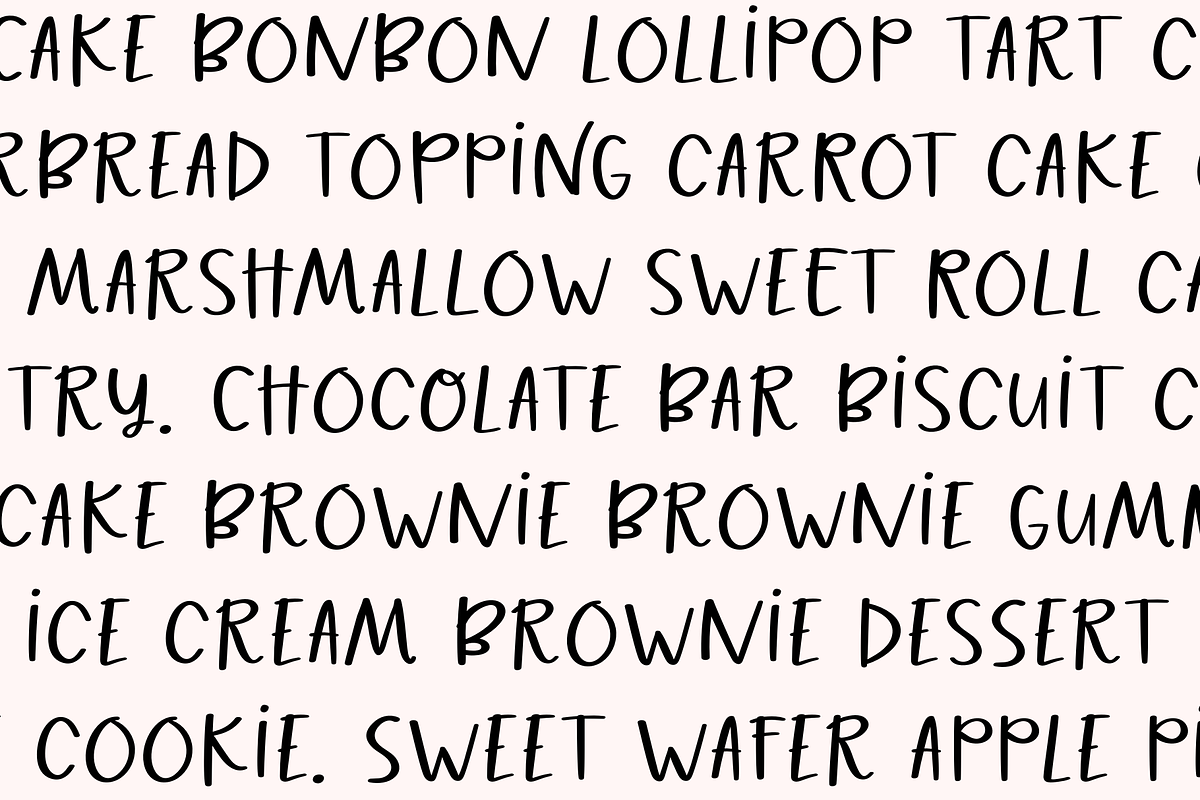 CAKE BONBON LOLLiPOP TART C
RBREAD TOPPiNG CARROT CAKE
MARSHMALLOW SWEET ROLL CA
TRY. CHOCOLATE BAR BiSCUiT C
CAKE BROWNiE BROWNiE GUMM
iCE CREAM BROWNiE DESSERT
COOKiE. SWEET WAFER APPLE Pi